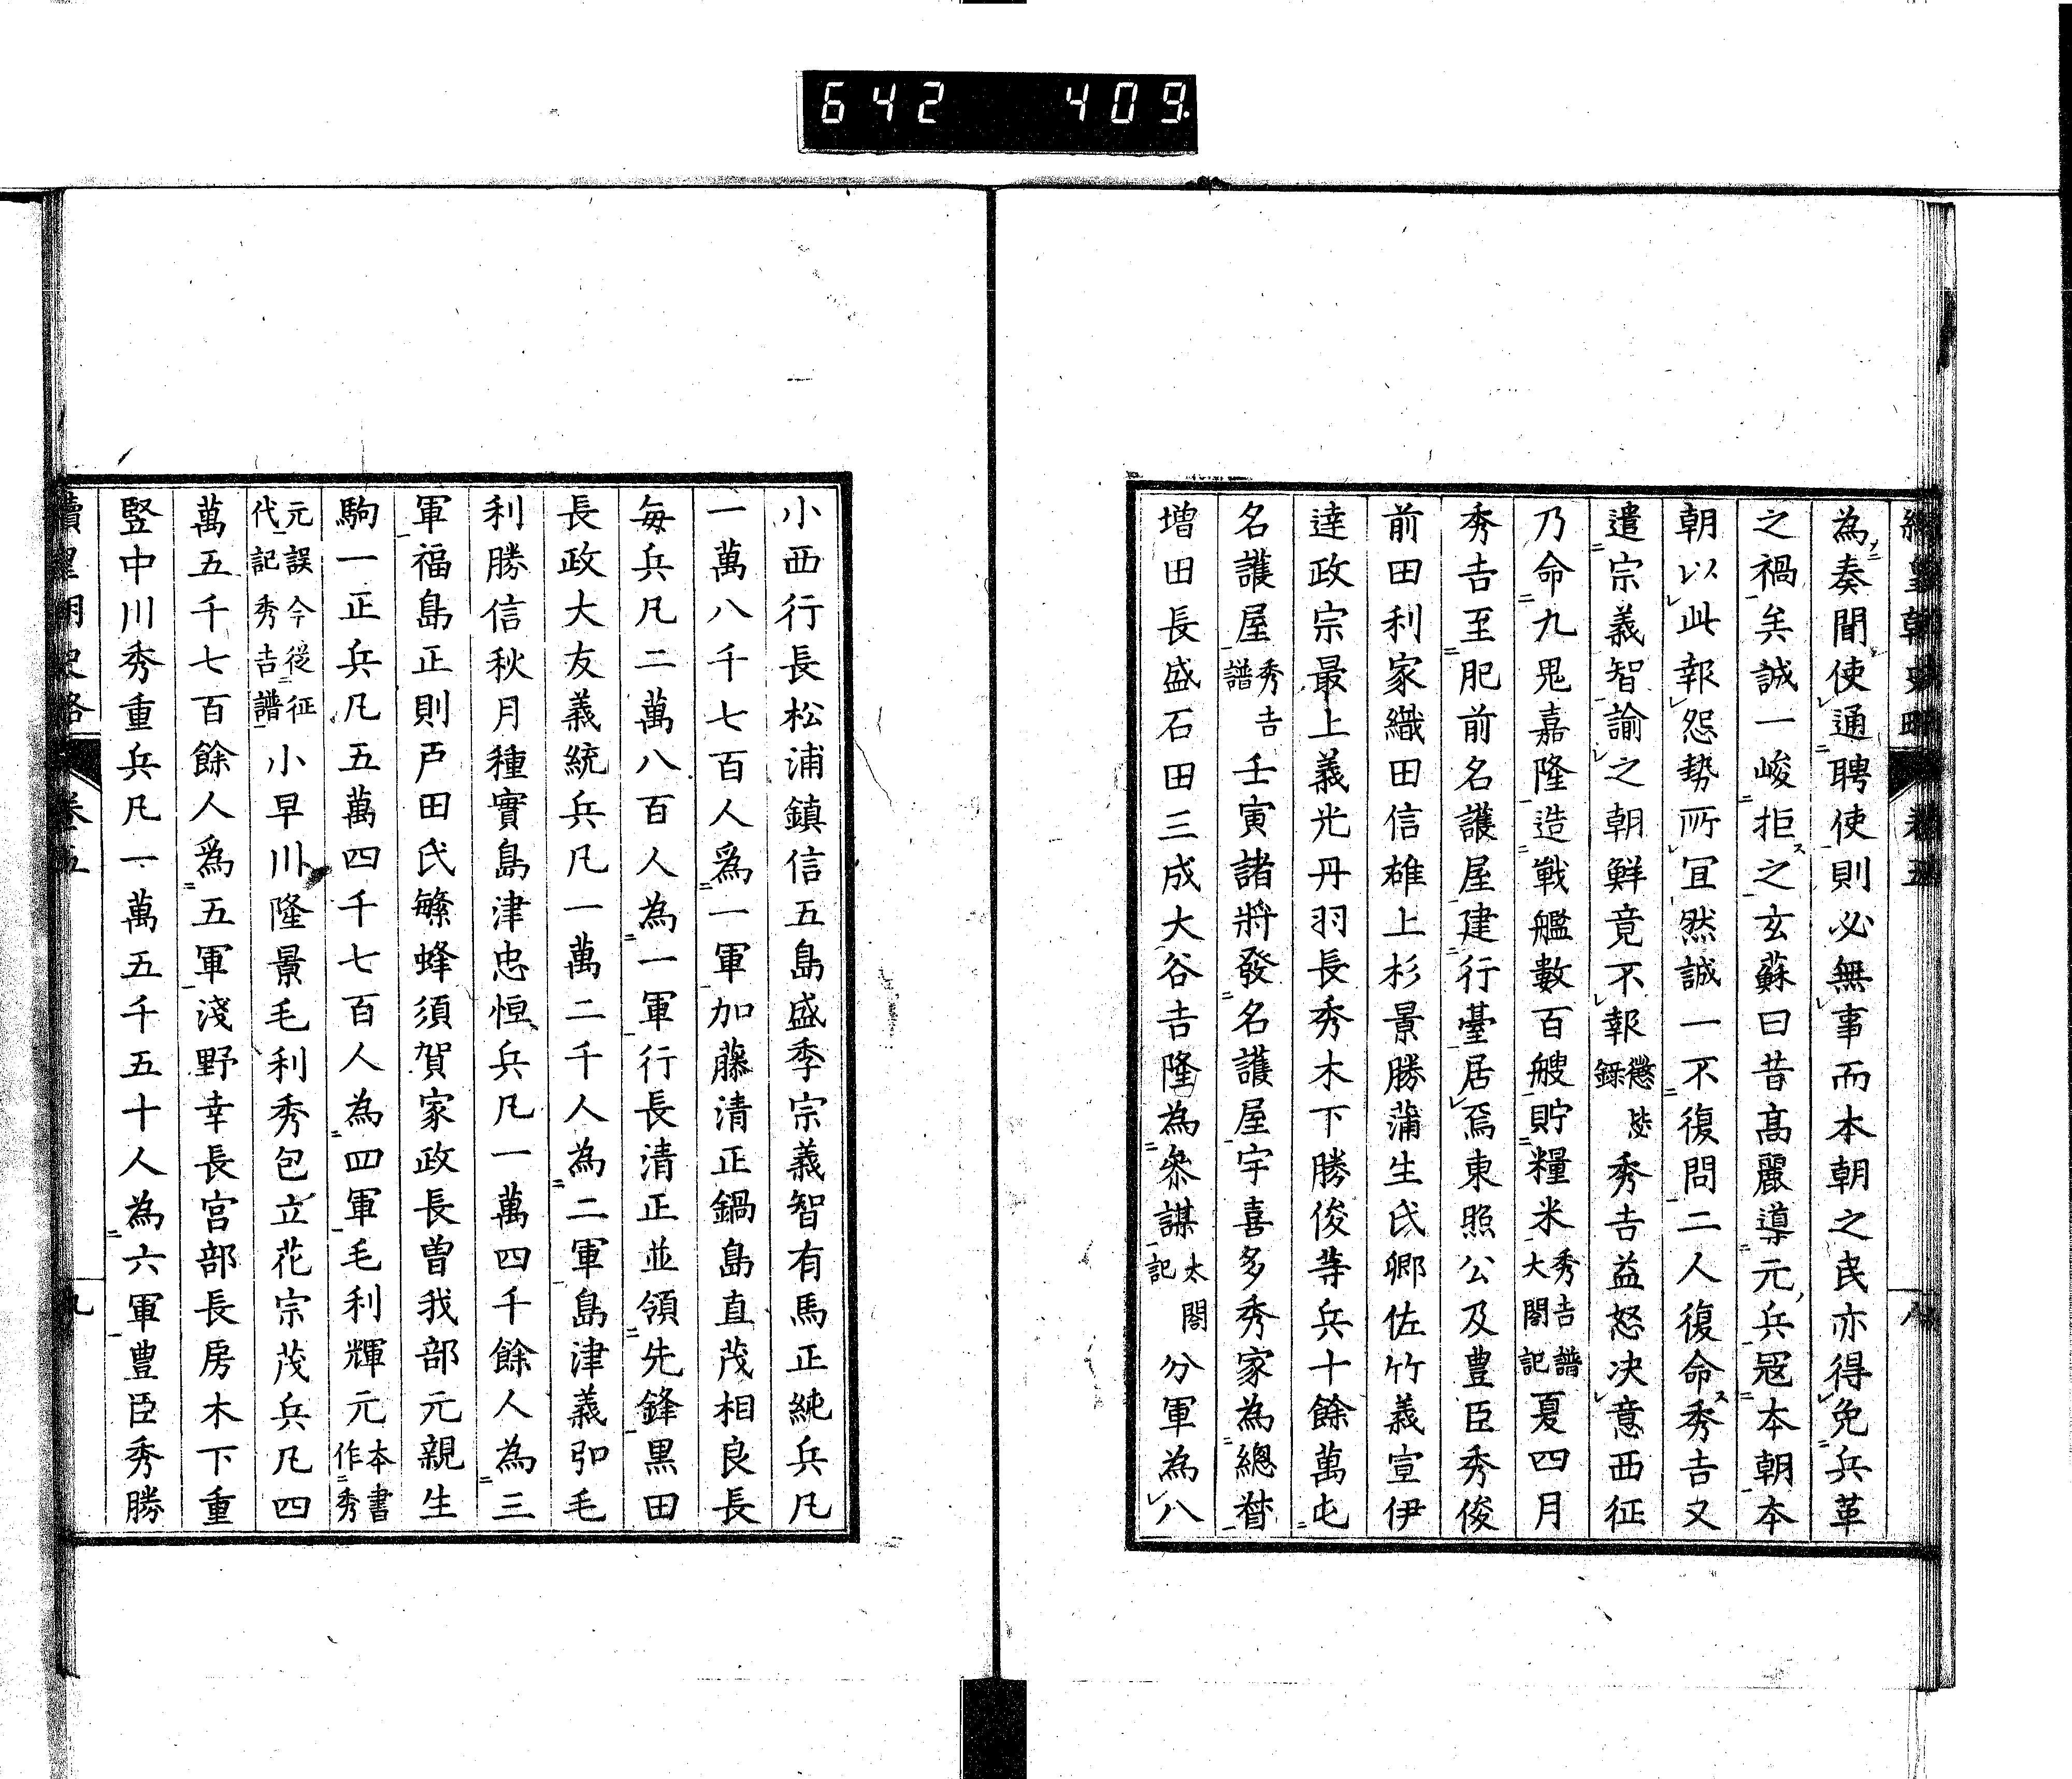 642 409
續皇朝史略 卷五 八
為奏聞使通聘使則必無事而本朝之民亦得免兵革
之禍矣誠一峻拒之玄蘇曰昔高麗導元兵冦本朝本
朝以此報怨勢所冝然誠一不復問二人復命秀吉又
遣宗義智諭之朝鮮竟不報懲毖錄秀吉益怒决意西征
乃命九鬼嘉隆造戰艦數百艘貯糧米秀吉譜大閤記夏四月
秀吉至肥前名護屋建行臺居焉東照公及豊臣秀俊
前田利家織田信雄上杉景勝蒲生氏鄉佐竹義宣伊
達政宗最上義光丹羽長秀木下勝俊等兵十餘萬屯
名護屋秀吉譜壬寅諸將發名護屋宇喜多秀家為總督
增田長盛石田三成大谷吉隆為參謀太閤記分軍為八
小西行長松浦鎮信五島盛季宗義智有馬正純兵凡
一萬八千七百人爲一軍加藤清正鍋島直茂相良長
每兵凡二萬八百人為一軍行長清正並領先鋒黒田
長政大友義統兵凡一萬二千人為二軍島津義弘毛
利勝信秋月種實島津忠恒兵凡一萬四千餘人為三
軍福島正則戸田氏繁蜂須賀家政長曽我部元親生
駒一正兵凡五萬四千七百人為四軍毛利輝元本書作秀
元誤今從征代記秀吉譜小早川隆景毛利秀包立花宗茂兵凡四
萬五千七百餘人爲五軍淺野幸長宮部長房木下重
竪中川秀重兵凡一萬五千五十人為六軍豊臣秀勝
續皇朝史略 卷五 九